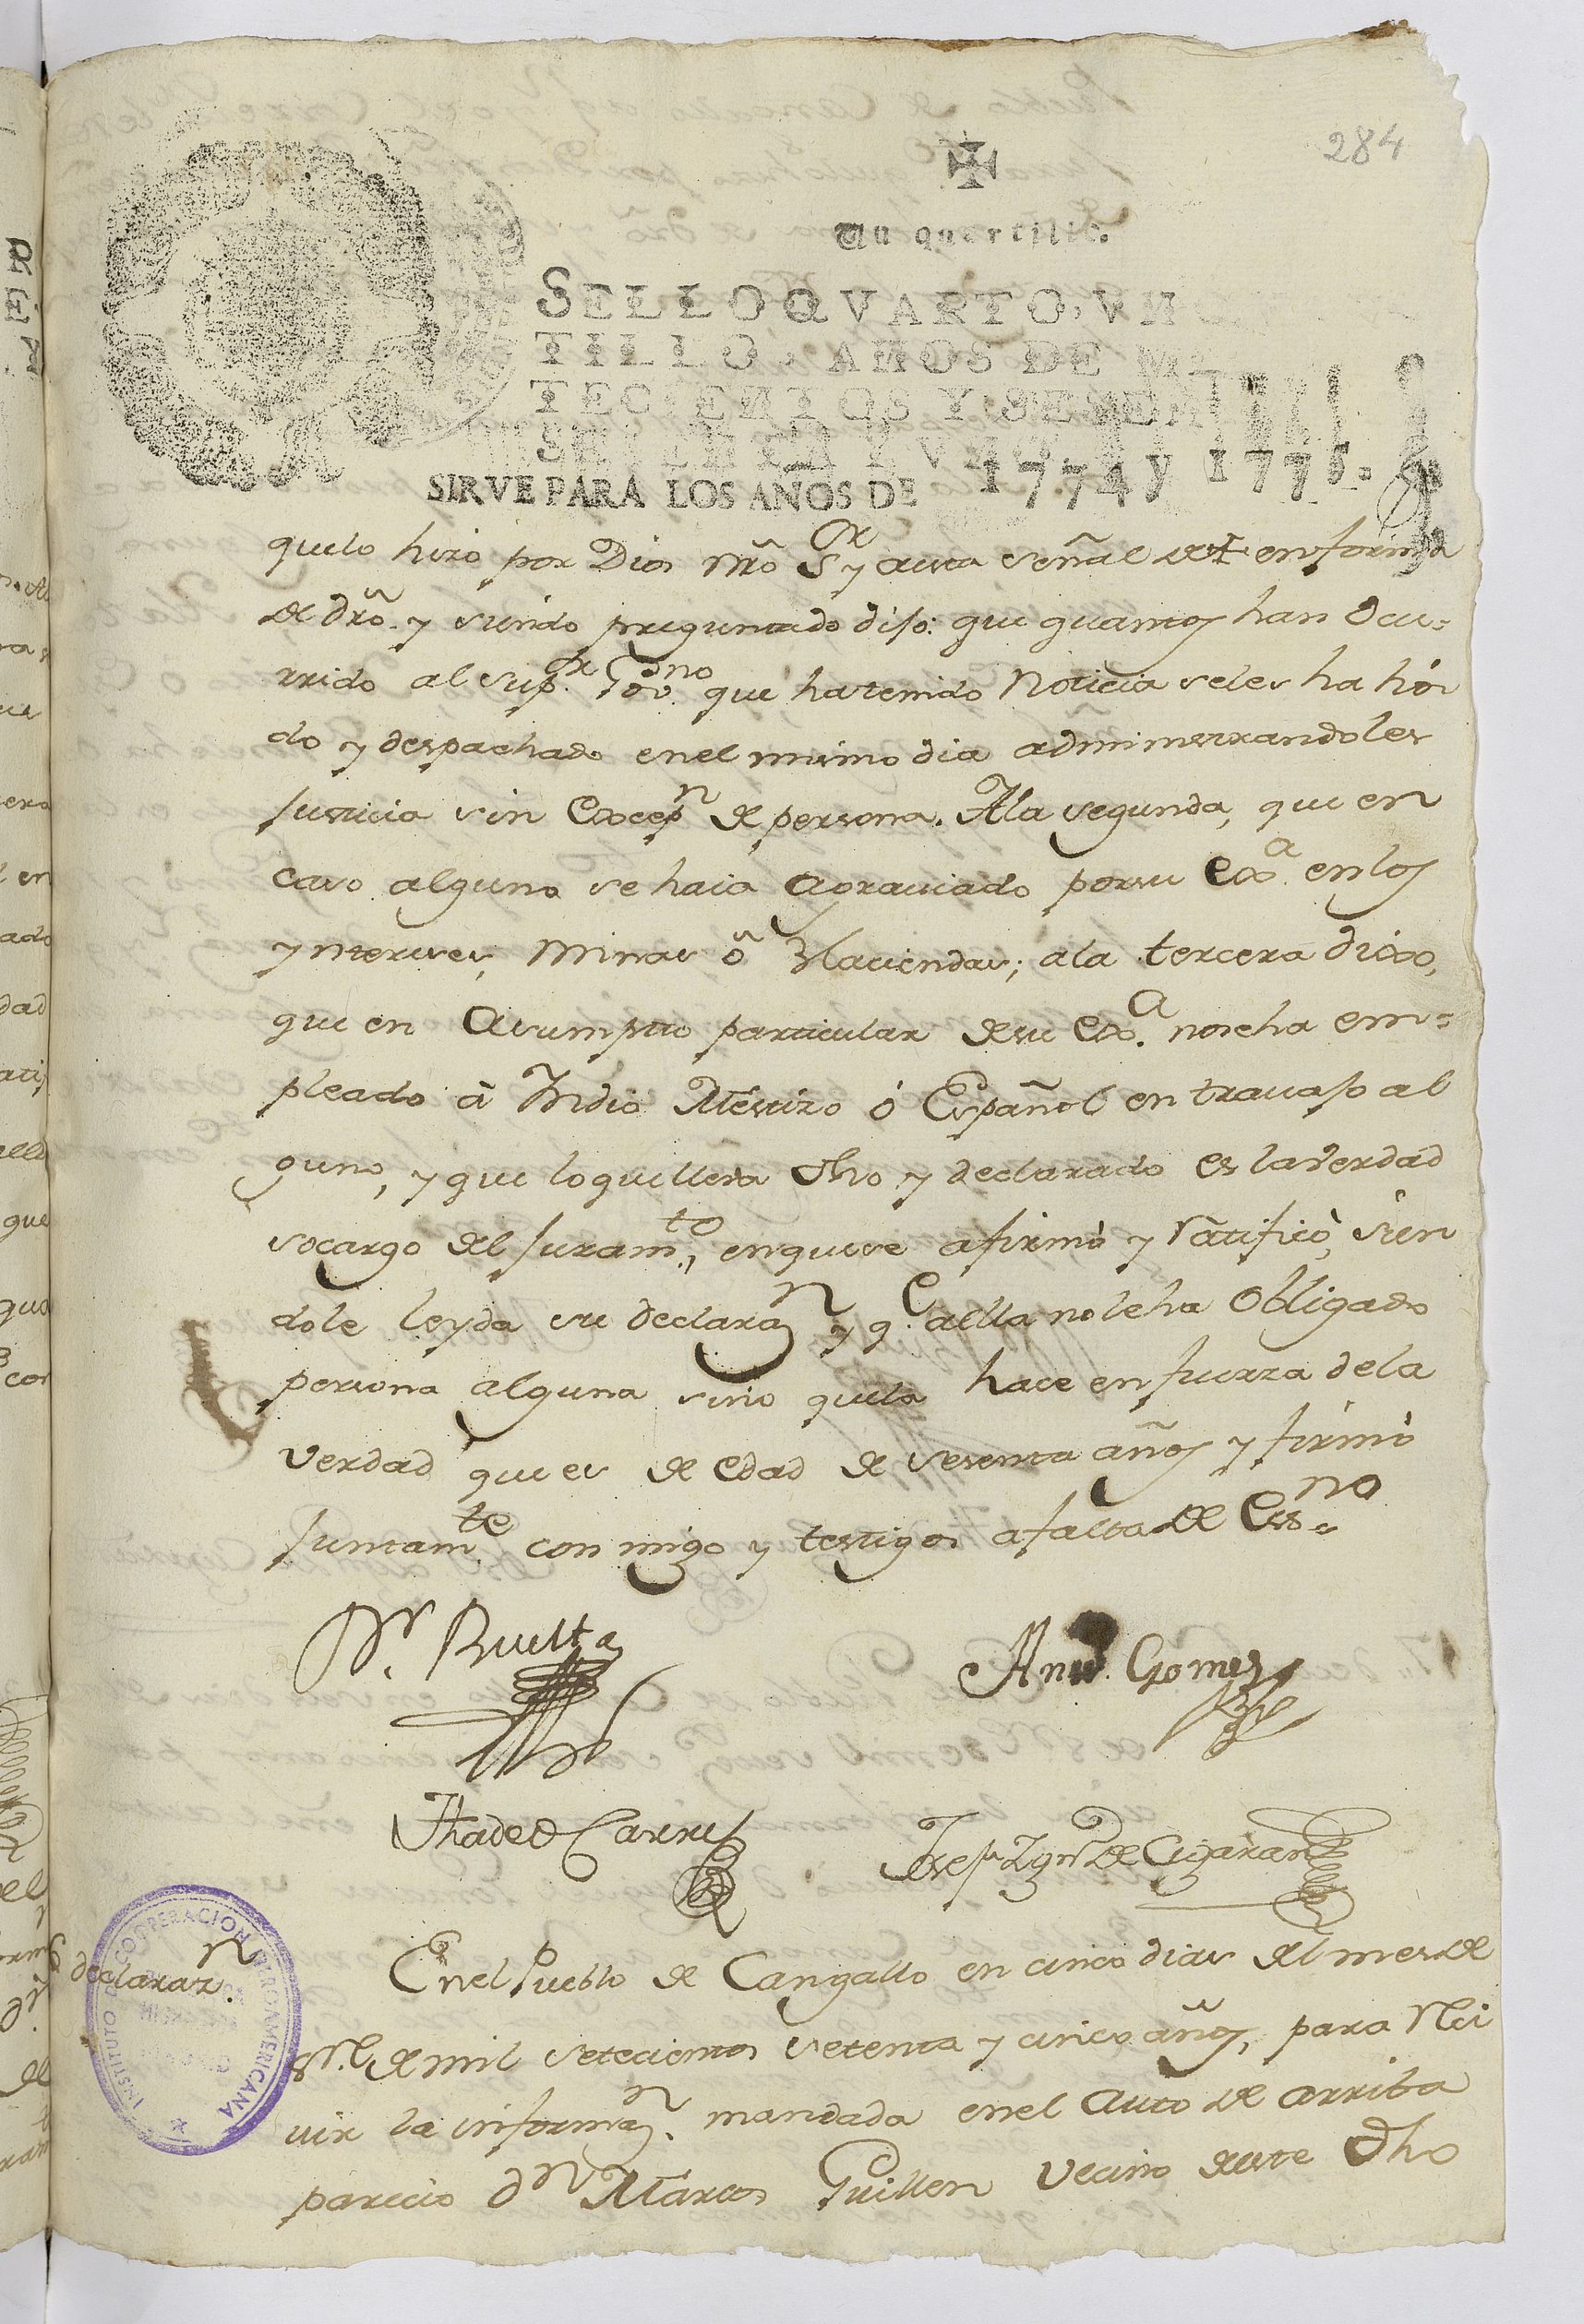 284
Un quartillo.
SELLO QVARTO, VN
TILLO, AÑOS DE M
TECIENTOS Y SESEN
SIRVE PARA LOS AÑOS DE 1774 y 1775.
quelo hizo por Dios Nrõ Sr y aesta señal de ✝ en forma
de drõ. y siendo preguntado dijo: que quantos han Ocu=
rrido al supor. Govno. que ha tenido Noticia seles ha hòi
do y despachado enel mismo dia adminnistrandoles
Justicia sin Excepn de persona. Ala segunda, que en
caso alguno se haia agraviado porsu Exa. en los
yntereses, Minas ô Haciendas; ala tercera dixo,
que en Asumpto particular desu Exa. nose ha em=
pleado â Yndio Mestizo ó Español en travajo al
guno, y que loquelleva dho y declarado es la Verdad
socargo del Juramto., enquese afirmò y Ratificò, sien
dole leyda su declaran. y qe. aella nole ha Obligado
persona alguna sino quela hace en fuerza dela
Verdad que es de edad de sesenta años y firmò
Juntamte. con migo y testigos afalta de Essno.
Dr. Ruelta
Anto. Gomez
Thadeo Carri
Josef Ygno de Cigaran
declaran.
Enel Pueblo de Cangallo en cinco dias del mes de
de mil setecientos setenta y cinco años, para Reci
vir la informan. mandada enel Auto de arriba
parecio dn Marcos Guillen Vecino deste dho
INSTITUTO DE COOPERACION IBEROAMERICANA